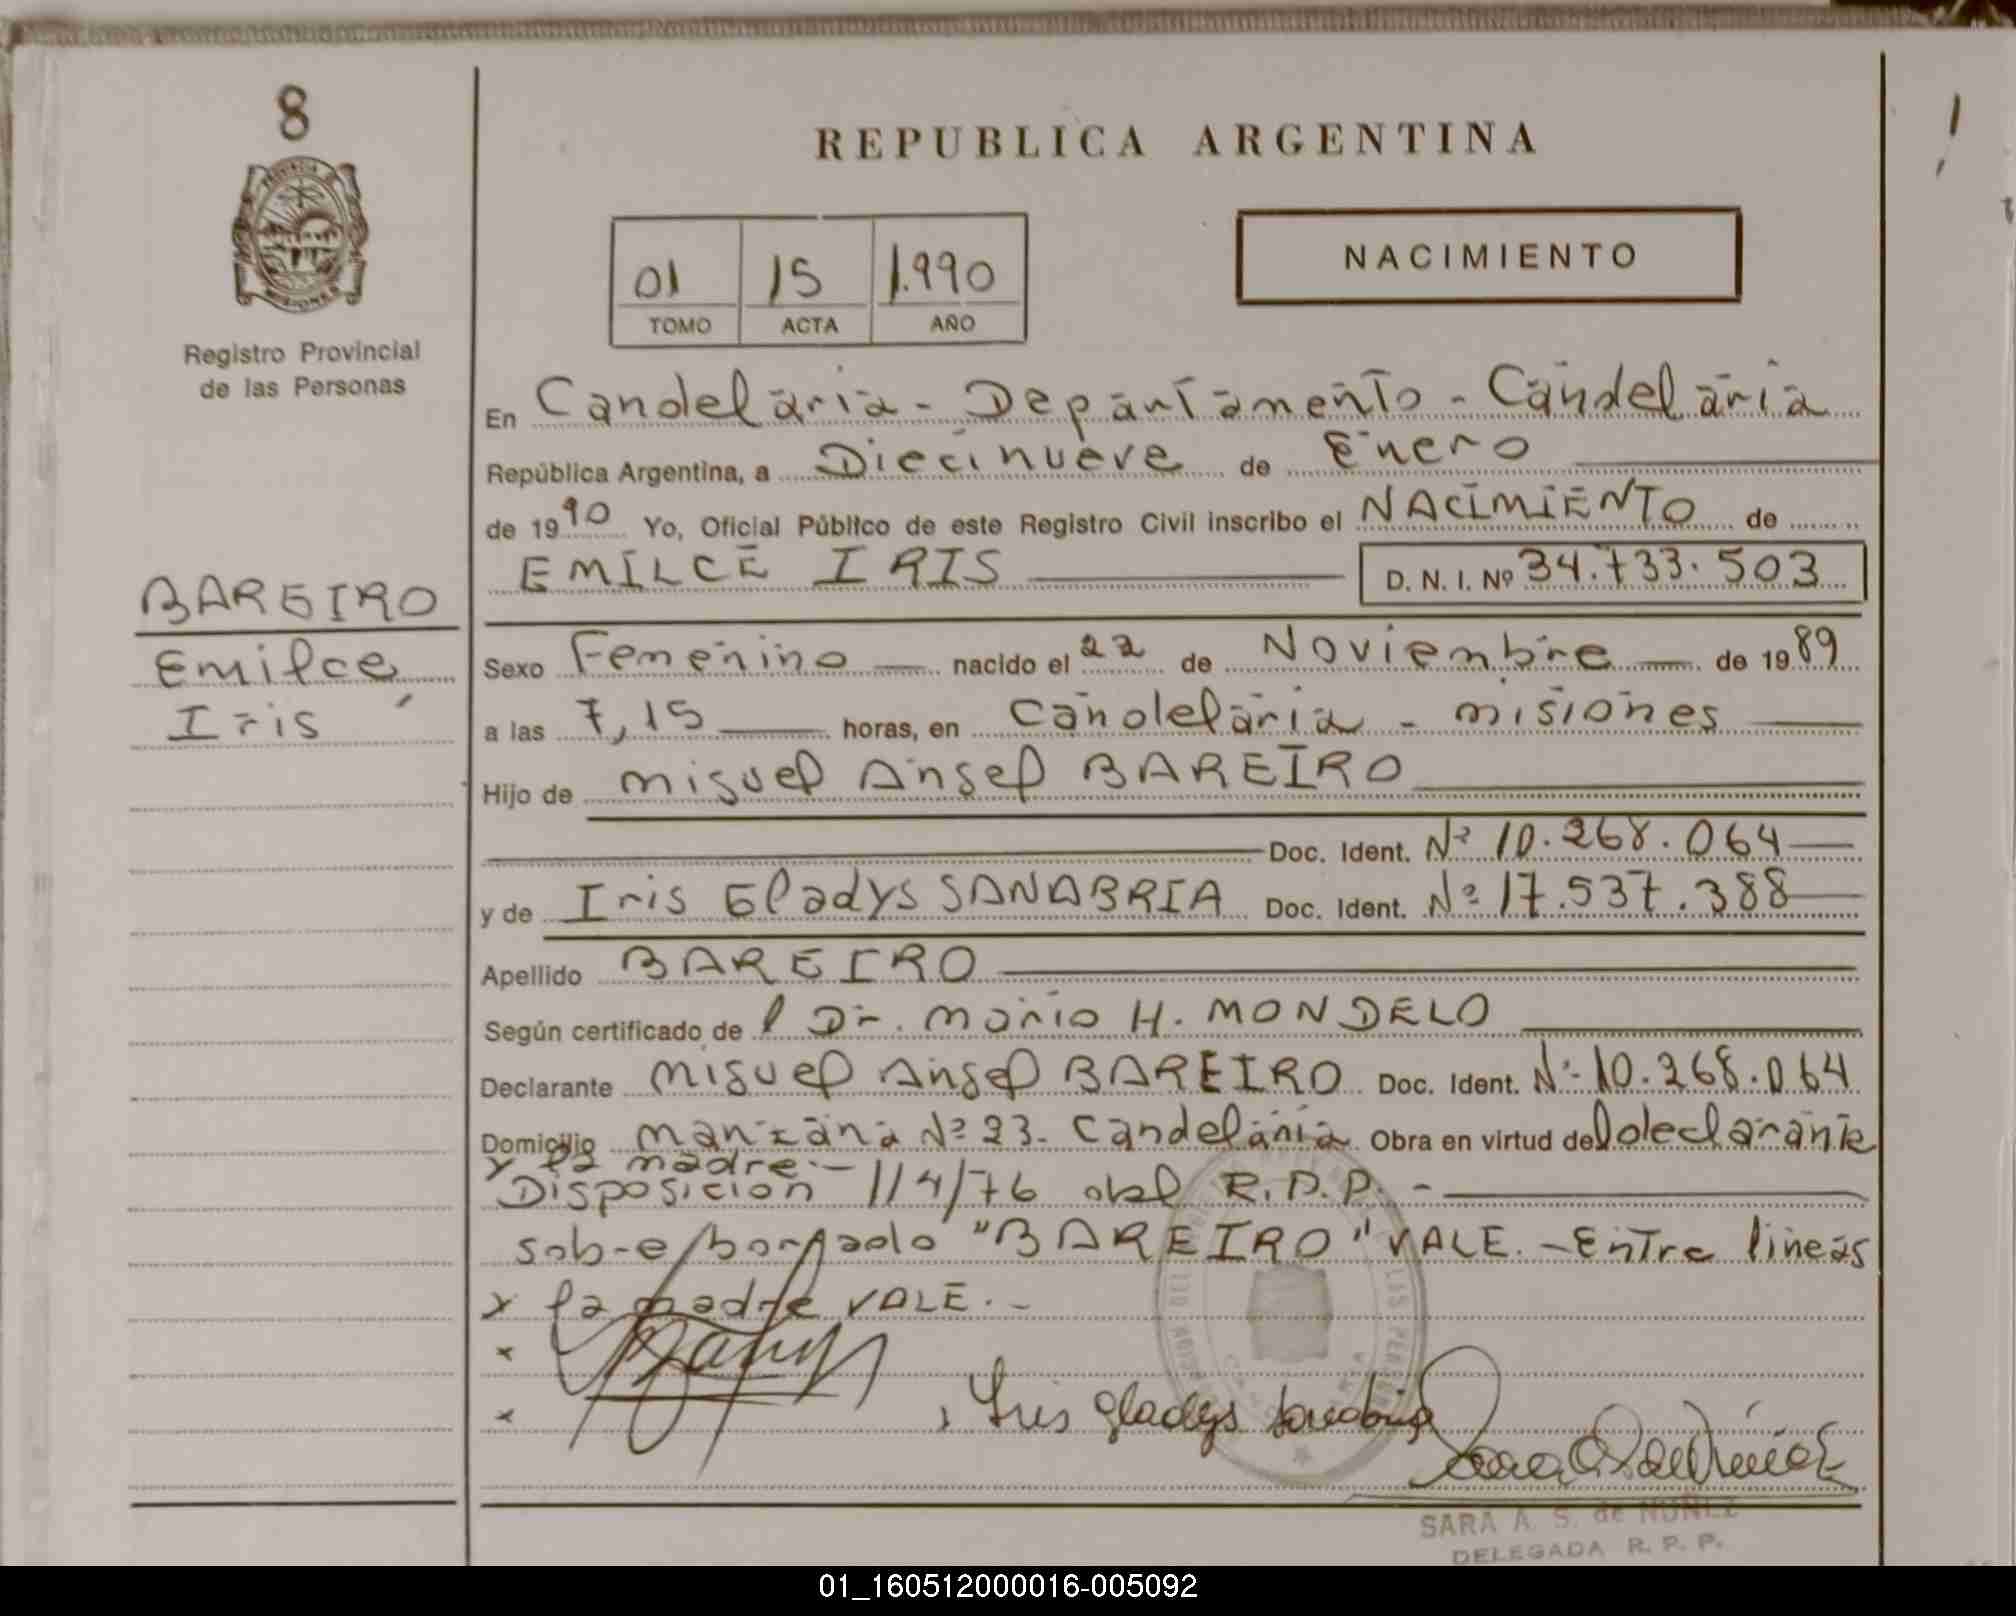 8
REPUBLICA ARGENTINA
01 15 1.990
TOMO ACTA AÑO
NACIMIENTO
Registro Provincial
de las Personas
BAREIRO
Emilce
Iris
En Candelaria - Departamento - Candelaria
República Argentina, a Diecinueve de Enero
de 1990 Yo, Oficial Público de este Registro Civil inscribo el NACIMIENTO de
EMILCE IRIS D. N. I. Nº 34.733.503
Sexo Femenino nacido el 22 de Noviembre de 1989
a las 7,15 horas, en Candelaria - misiones
Hijo de Miguel Angel BAREIRO
Doc. Ident. Nº 10.268.064
y de Iris Gladys SANABRIA Doc. Ident. Nº 17.537.388
Apellido BAREIRO
Según certificado de l Dr. Mario H. MONDELO
Declarante Miguel Angel BAREIRO Doc. Ident. Nº 10.268.064
Domicilio manzana Nº 23- Candelaria Obra en virtud del declarante
y la madre.-
Disposicion 114/76 del R.P.P. -
sobre/borrado "BAREIRO" VALE. - Entre lineas
y la madre VALE. -
Iris Gladys Sanabria
SARA A. S. de NUÑEZ
DELEGADA R. P. P.
01_160512000016-005092